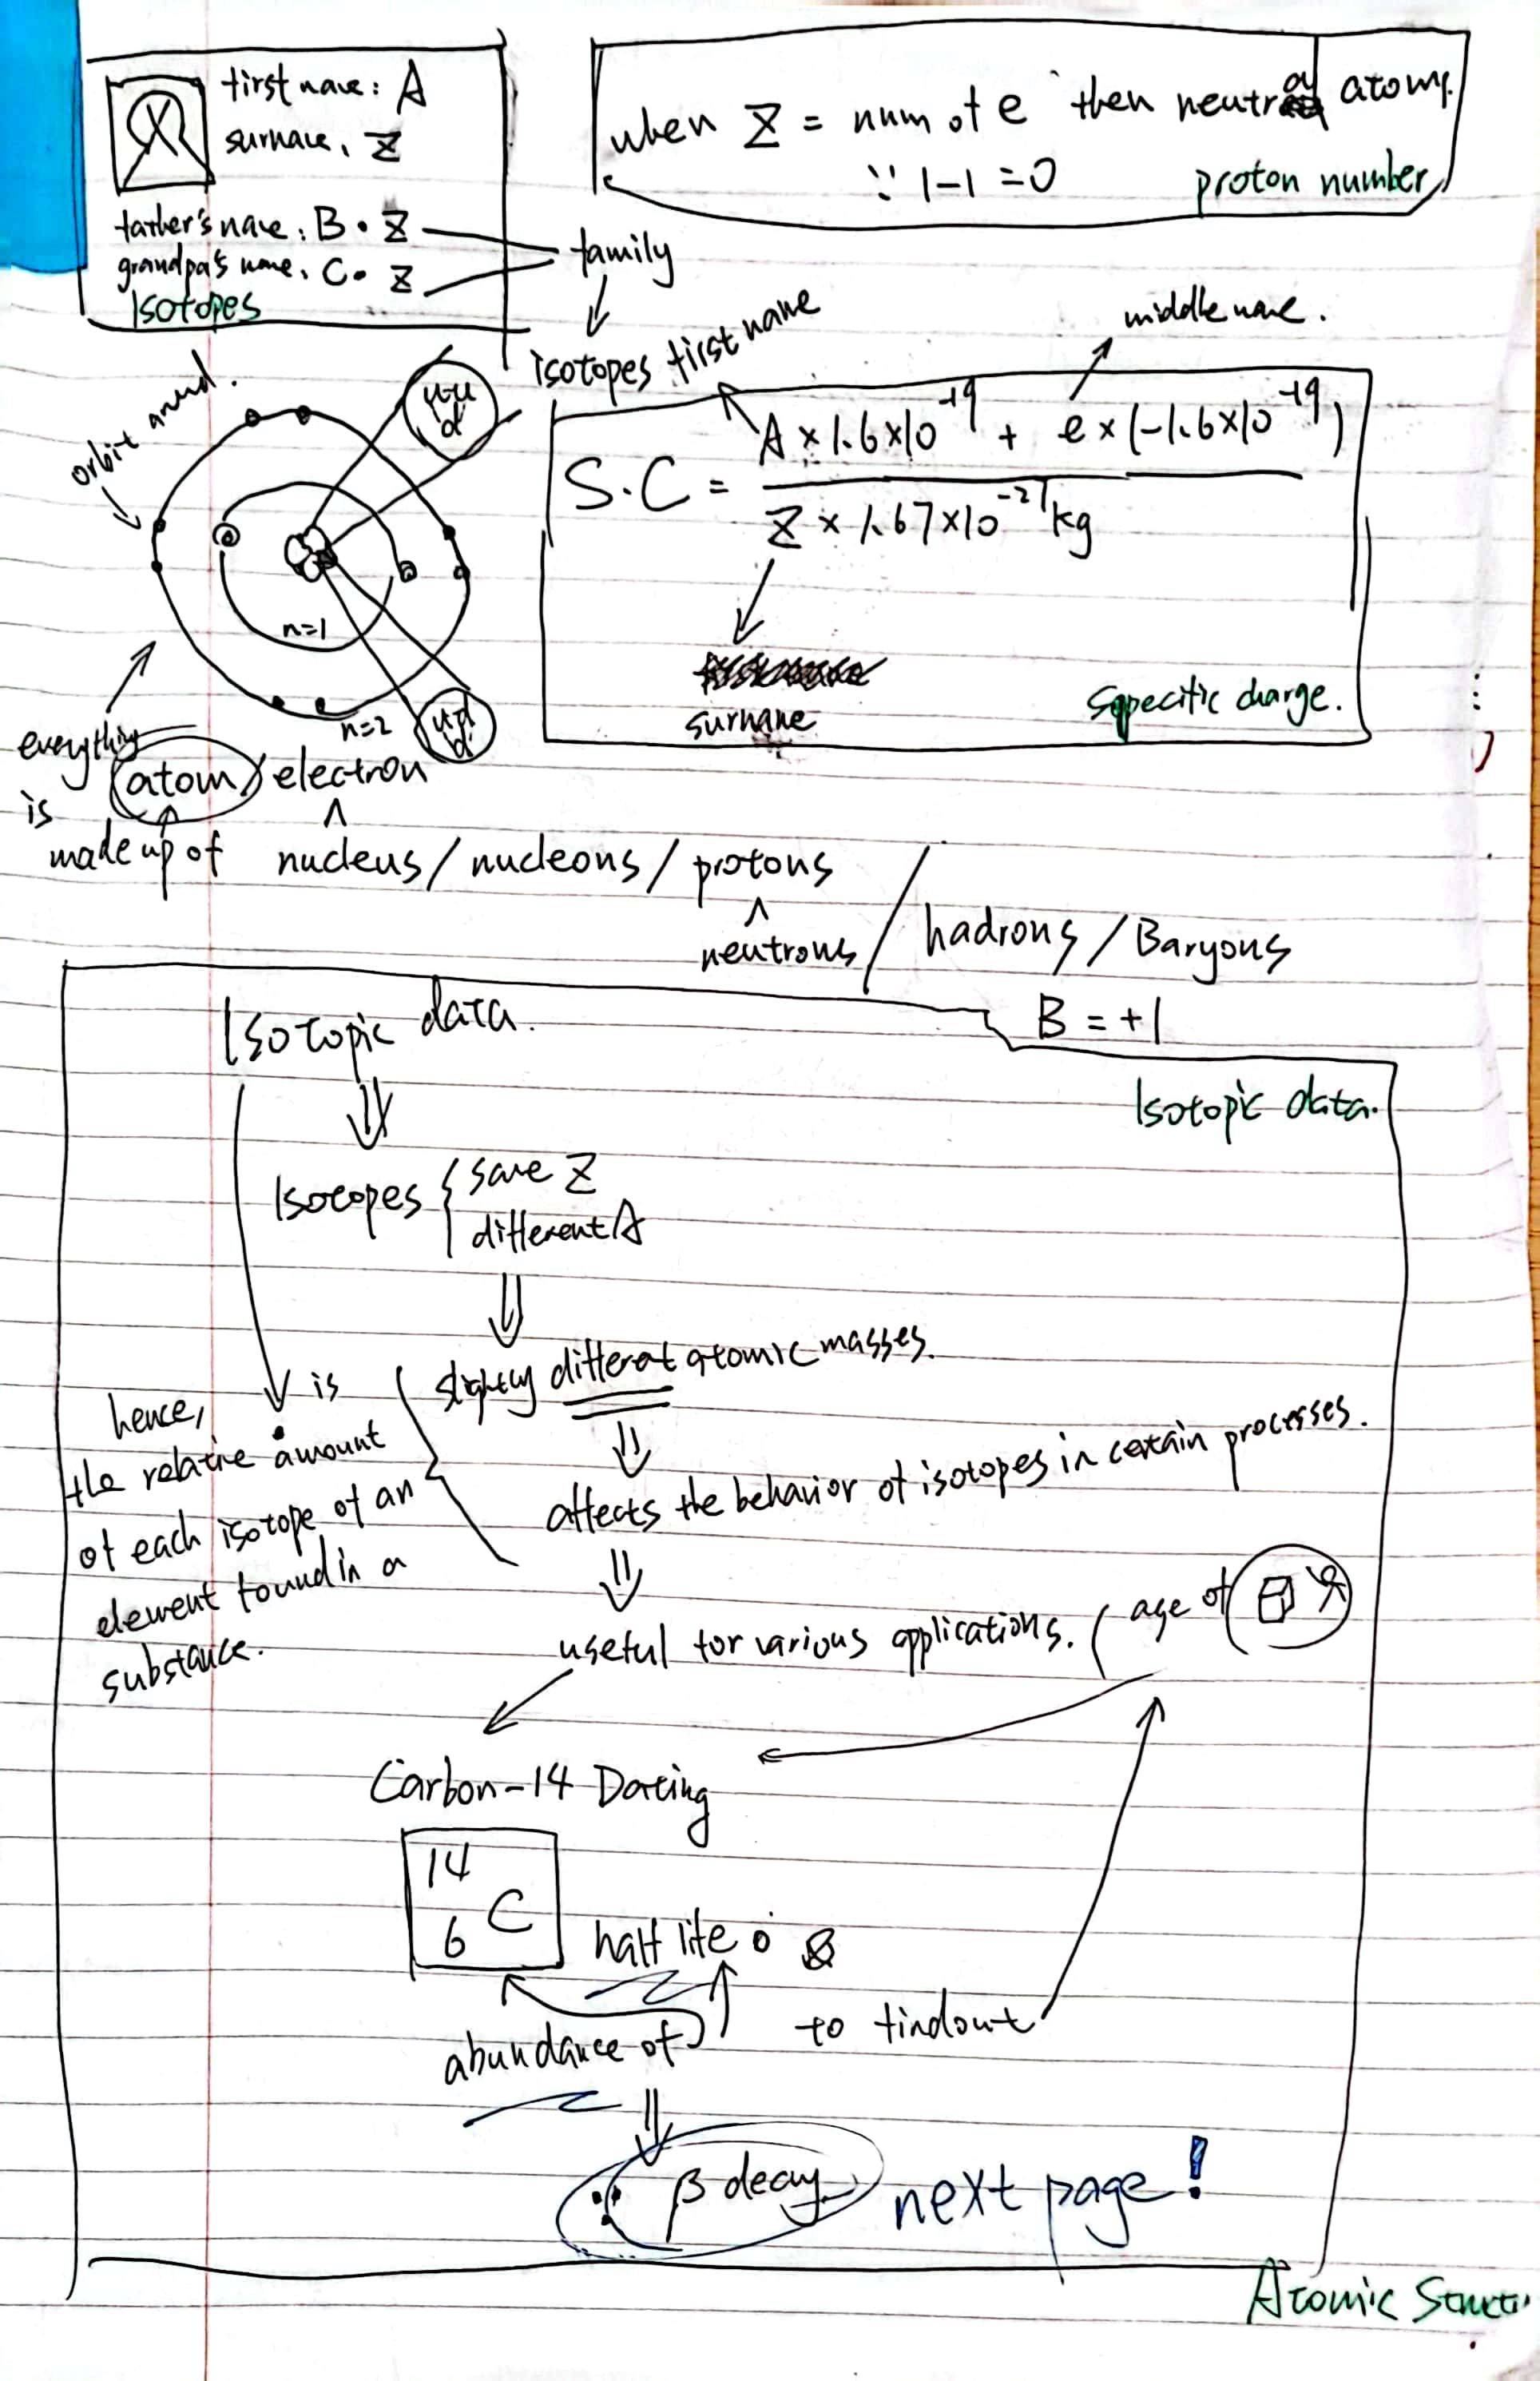 first name: A
surname: Z
father's name: B · Z
grandpa's name: C · Z
Isotopes
family
isotopes
when Z = num of e⁻ then neutral atoms.
∵ 1-1=0
proton number
orbit around.
n=1
n=2
u u
d
u d
d
first name
middle name.
S.C = (A × 1.6×10⁻¹⁹ + e × (-1.6×10⁻¹⁹)) / (Z × 1.67×10⁻²⁷ kg)
surname
Sqpecific charge.
everything
is
made up of
atom / electron
^
nucleus / nucleons / protons
^
neutrons
/ hadrons / Baryons
B = +1
Isotopic data.
Isotopic data.
Isotopes { same Z
different A
slightly different atomic masses.
affects the behavior of isotopes in certain processes.
useful for various applications. ( age of
hence,
is
the relative amount
of each isotope of an
element found in a
substance.
Carbon-14 Dating
14
6 C
half life of
abundance of
to findout
β decay
next page!
Atomic Structu